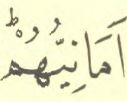 اَمَانِيُّهُمْؕ